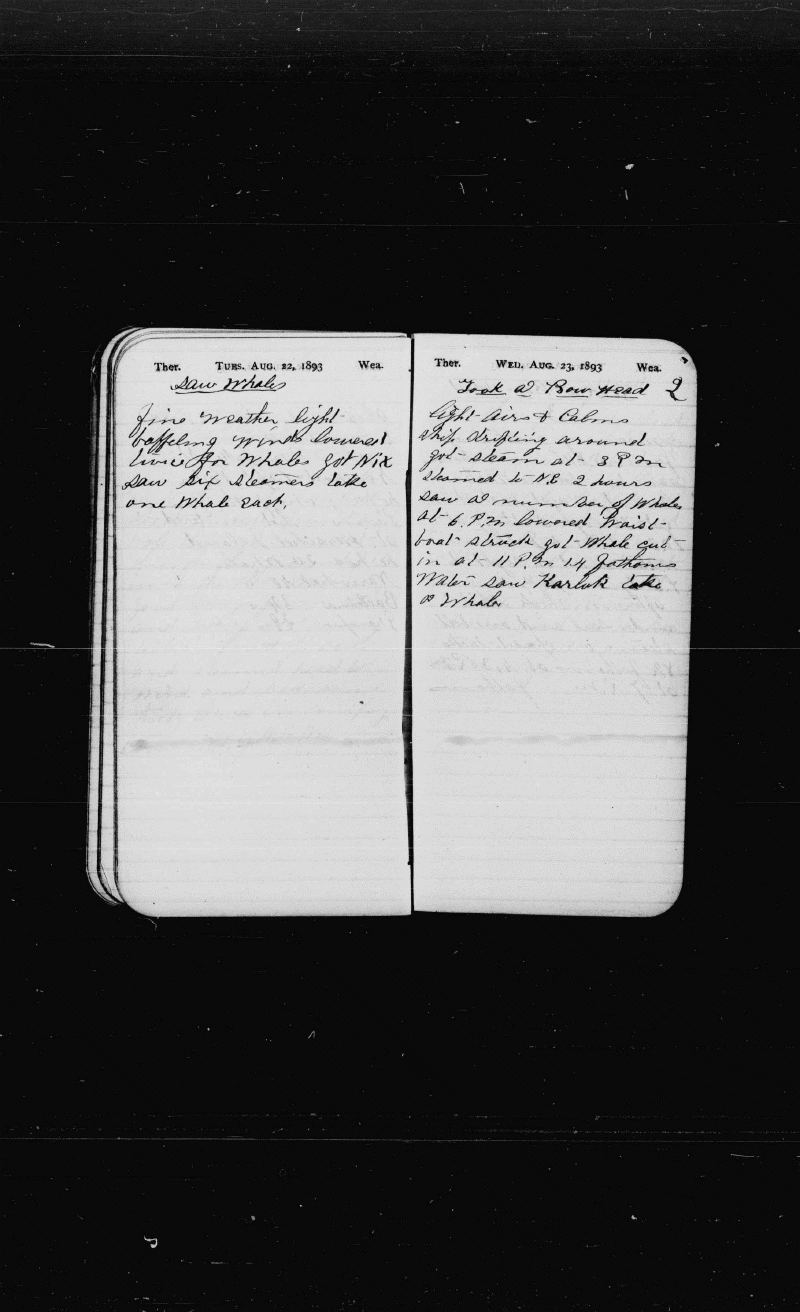 Ther. TUES. AUG. 22, 1893 Wea.
Saw Whales
fine weather light
baffeling winds lowered
twice for Whales got Nix
saw six steamers take
one Whale each.
Ther. WED. AUG. 23, 1893 Wea.
Took a Bow Head 2
light airs & Calms
ship drifting around
got steam at 3 P M
steamed to N.E. 2 hours
saw a number of Whales
at 6. P.M lowered Waist
boat struck got Whale cut
in at 11 P.M 14 fathoms
Water saw Karluk take
a Whale